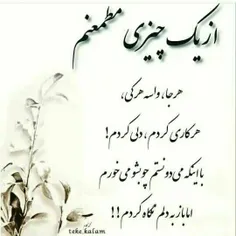 از یک چیزی مطمعنم
هرجا، واسه هرکی،
هرکاری کردم، دلی کردم!
با اینکه می دونستم چوبشو می خورم
اما باز به دلم نگاه کردم!!
teke.kalam